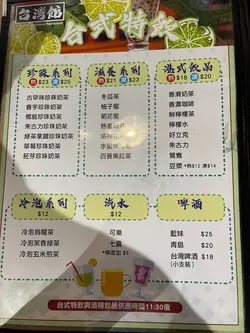 台灣館
台式特飲
珍珠系列
熱 $23 凍 $25
古早味珍珠奶茶
香芋珍珠奶茶
椰庭珍珠奶茶
朱古力珍珠奶茶
綠茶拿鐵珍珠奶茶
草莓珍珠奶茶
胚芽珍珠奶茶
滋養系列
熱 $21 凍 $23
冬瓜茶
柚子蜜
菊花蜜
百香果紅茶
港式飲品
熱 $18 凍 $20
香滑奶茶
香濃咖啡
鮮檸檬茶
檸檬水
好立克
朱古力
鴛鴦
豆漿 •熱$12 凍$14
冷泡系列
$12
冷泡烏龍茶
冷泡茉香綠茶
冷泡玄米煎茶
汽水
$12
可樂
七喜
•檸底加 $5
啤酒
藍妹 $25
青島 $20
台灣啤酒 $18
(小支裝)
台式特飲與酒精飲品供應時間11:30後